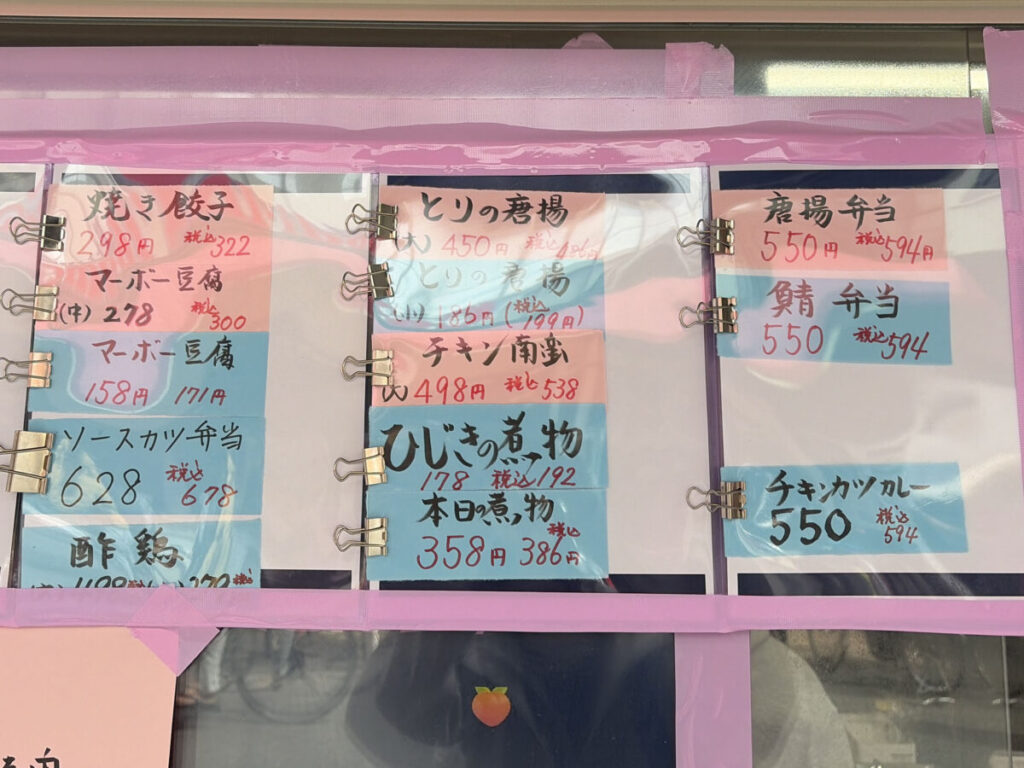 焼き餃子
298円 税込 322
マーボー豆腐
(中) 278 税込 300
マーボー豆腐
158円 171円
ソースカツ弁当
628 税込 678
酢鶏
とりの唐揚
(大) 450円 税込 486円
とりの唐揚
(小) 186円 (税込 199円)
チキン南蛮
(大) 498円 税込 538
ひじきの煮物
178 税込 192
本日の煮物
358円 税込 386円
唐揚弁当
550円 税込 594円
鯖弁当
550 税込 594
チキンカツカレー
550 税込 594